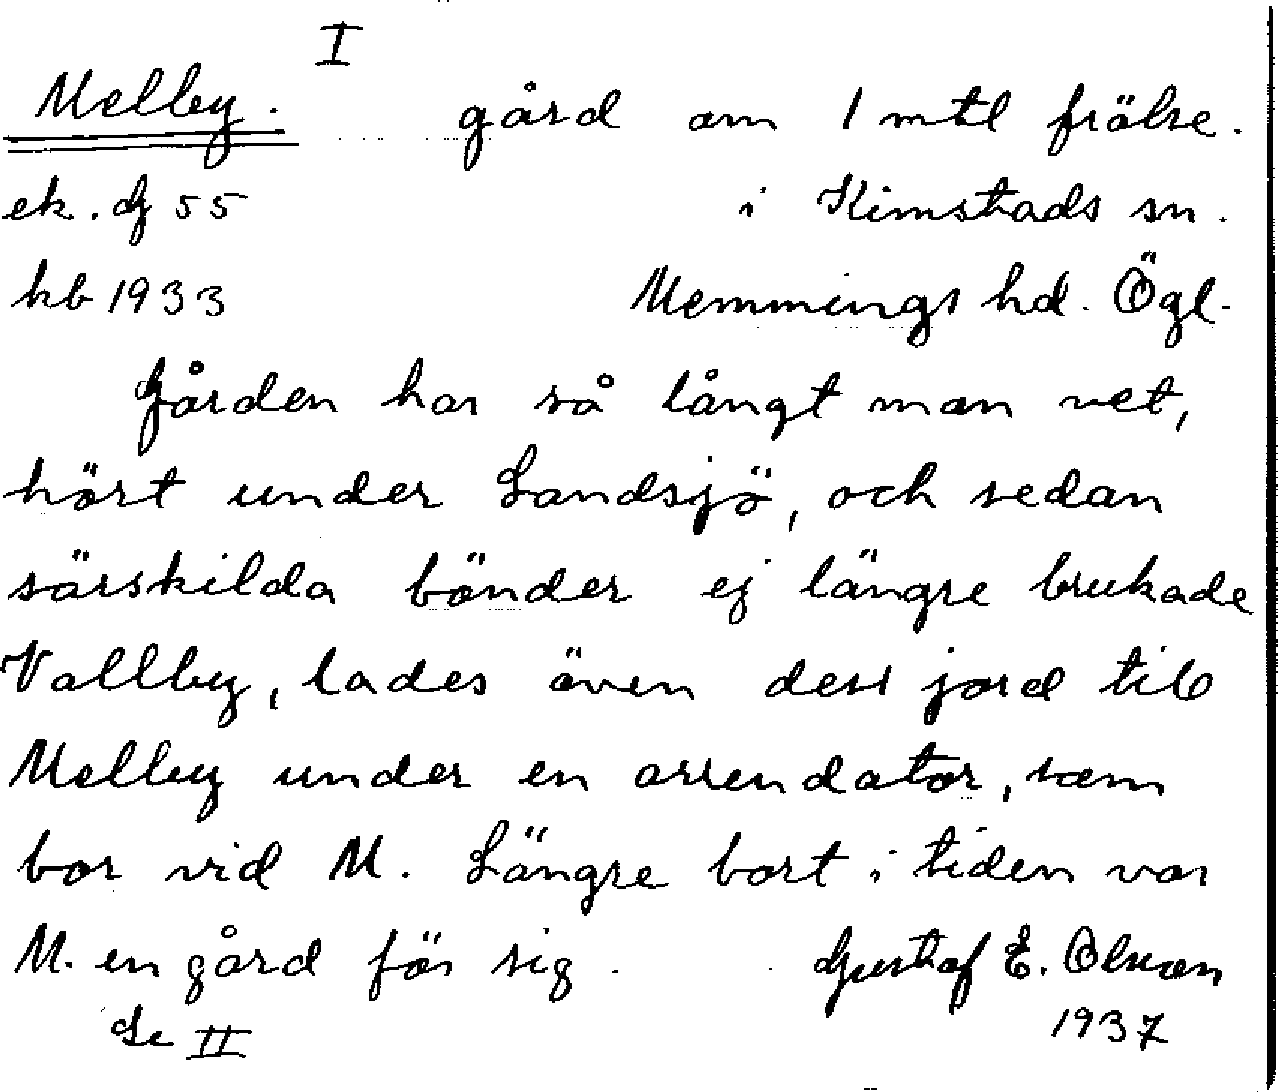 I
Melby. gård om 1 mtl frälse.
ek. bl 55 i Kimstads sn.
kb 1933 Memmings hd. Ögl.
Gården har så långt man vet,
hört under Landsjö, och sedan
särskilda bönder ej längre brukade
Vallby, lades även dess jord till
Melby under en arrendator, som
bor vid M. Längre bort i tiden var
M. en gård för sig. Gustaf E. Olsson
Se II 1937